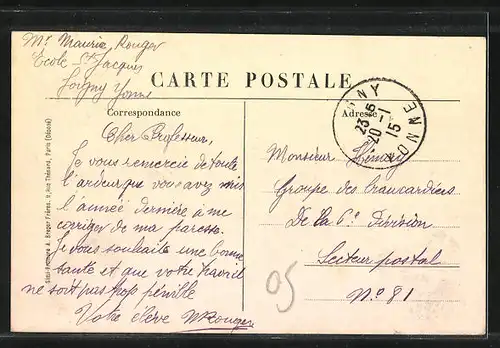 Mr Maurice Rouger
Ecole St Jacques
Joigny Yonne
CARTE POSTALE
Correspondance
Adresse
NY
23 15
20 -1
15
YONNE
Cher Professeur,
Je vous remercie de toute
l'ardeur que vous avez mis
l'année dernière à me
corriger de ma paresse.
Je vous souhaite une bonne
santé et que votre travail
ne soit pas trop pénible
Votre élève MRouger
Monsieur
Groupe des brancardiers
De la 6e Division
Secteur postal
No 81
05
Paris